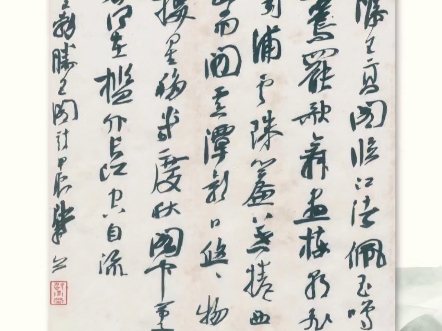 滕王高阁临江渚佩玉鸣
鸾罢歌舞画栋朝飞
南浦云珠帘暮捲西
山雨闲云潭影日悠悠物
换星移几度秋阁中帝
今何在槛外长江空自流
王勃滕王阁诗甲辰